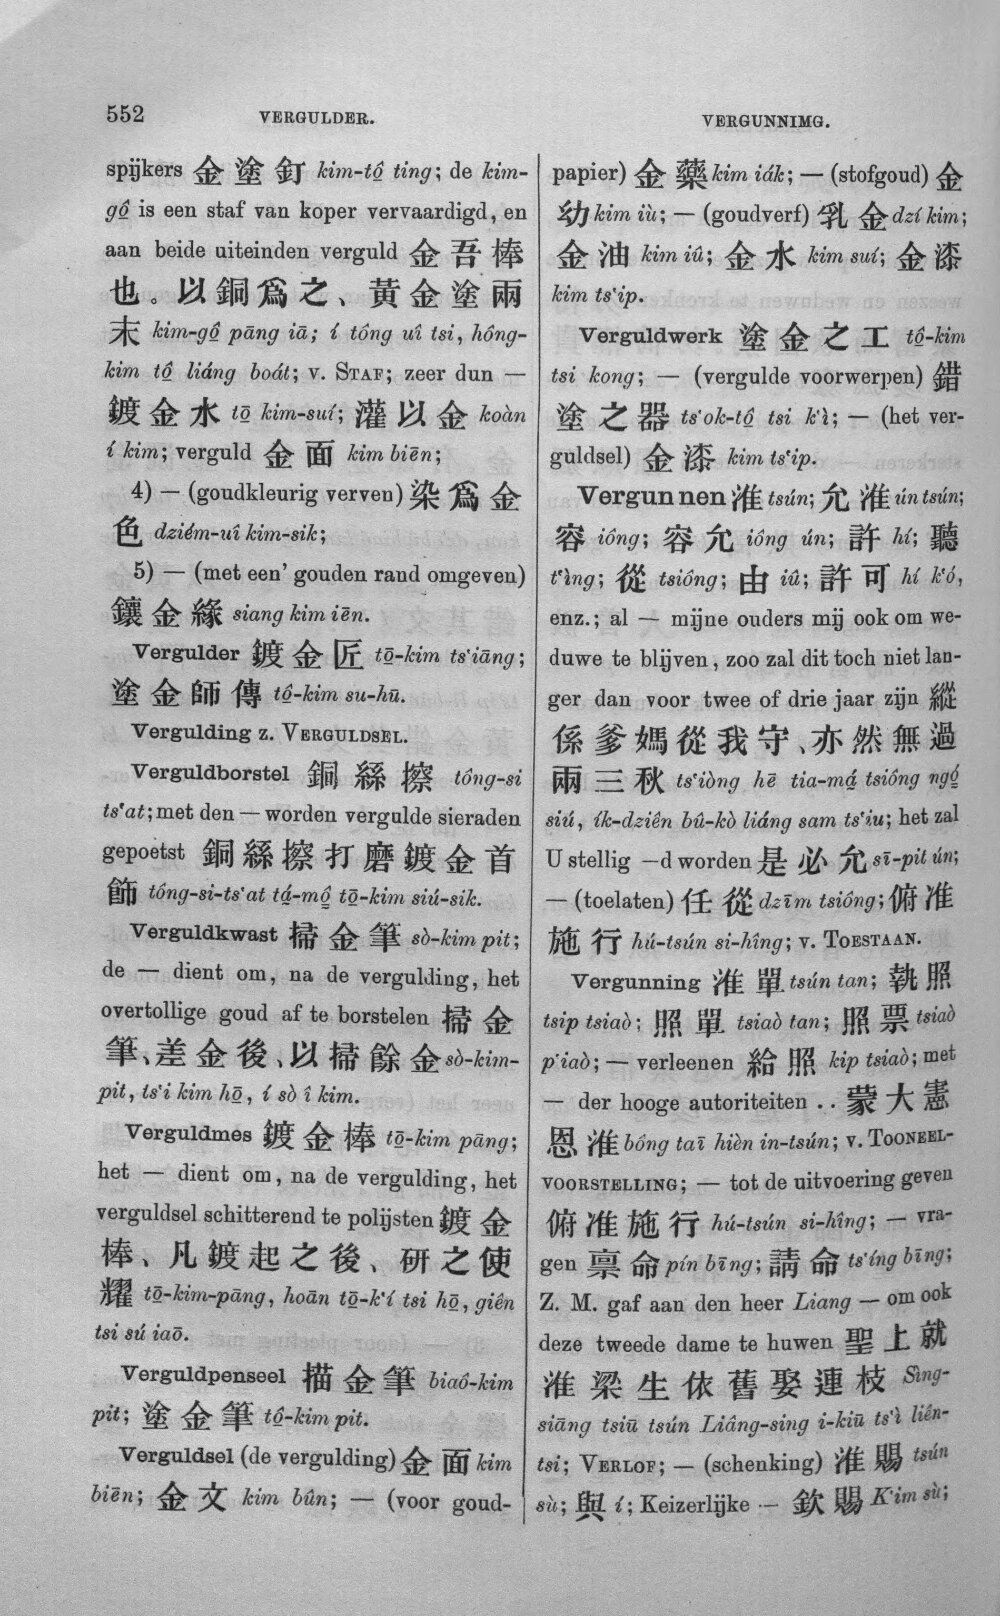 552
VERGULDER.
VERGUNNIMG.
spijkers 金塗釘 kim-tô͘ ting; de kim-
gô͘ is een staf van koper vervaardigd, en
aan beide uiteinden verguld 金吾棒
也。以銅爲之、黃金塗兩
末 kim-gô͘ pāng iā; í tông uî tsi, hông-
kim tô͘ liáng boát; v. STAF; zeer dun —
鍍金水 tō͘ kim-suí; 灌以金 koàn
í kim; verguld 金面 kim biēn;
4) — (goudkleurig verven) 染爲金
色 dziém-uî kim-sik;
5) — (met een' gouden rand omgeven)
鑲金緣 siang kim iēn.
Vergulder 鍍金匠 tō͘-kim ts‘iāng;
塗金師傅 tô͘-kim su-hū.
Vergulding z. VERGULDSEL.
Verguldborstel 銅絲擦 tông-si
ts‘at; met den — worden vergulde sieraden
gepoetst 銅絲擦打磨鍍金首
飾 tông-si-ts‘at tá̤-mô̤ tō͘-kim siú-sik.
Verguldkwast 掃金筆 sò-kim pit;
de — dient om, na de vergulding, het
overtollige goud af te borstelen 掃金
筆、差金後、以掃餘金 sò-kim-
pit, ts‘i kim hō͘, í sò î kim.
Verguldmes 鍍金棒 tō͘-kim pāng;
het — dient om, na de vergulding, het
verguldsel schitterend te polijsten 鍍金
棒、凡鍍起之後、研之使
耀 tō͘-kim-pāng, hoān tō͘-k‘í tsi hō͘, giên
tsi sú iaō.
Verguldpenseel 描金筆 biaô-kim
pit; 塗金筆 tô͘-kim pit.
Verguldsel (de vergulding) 金面 kim
biēn; 金文 kim bûn; — (voor goud-
papier) 金藥 kim iák; — (stofgoud) 金
幼 kim iù; — (goudverf) 乳金 dzí kim;
金油 kim iû; 金水 kim suí; 金漆
kim ts‘ip.
Verguldwerk 塗金之工 tô͘-kim
tsi kong; — (vergulde voorwerpen) 錯
塗之器 ts‘ok-tô͘ tsi k‘ì; — (het ver-
guldsel) 金漆 kim ts‘ip.
Vergunnen 准 tsún; 允准 ún tsún;
容 iông; 容允 iông ún; 許 hí; 聽
t‘ìng; 從 tsiông; 由 iû; 許可 hí k‘ó,
enz.; al — mijne ouders mij ook om we-
duwe te blijven, zoo zal dit toch niet lan-
ger dan voor twee of drie jaar zijn 縱
係爹媽從我守、亦然無過
兩三秋 ts‘iòng hē tia-má̤ tsiông ngó̤
siú, ík-dziên bû-kò liáng sam ts‘iu; het zal
U stellig —d worden 是必允 sī-pit ún;
— (toelaten) 任從 dzīm tsiông; 俯准
施行 hú-tsún si-hîng; v. TOESTAAN.
Vergunning 准單 tsún tan; 執照
tsip tsiaò; 照單 tsiaò tan; 照票 tsiaò
p‘iaò; — verleenen 給照 kip tsiaò; met
— der hooge autoriteiten .. 蒙大憲
恩准 bông taī hièn in-tsún; v. TOONEEL-
VOORSTELLING; — tot de uitvoering geven
俯准施行 hú-tsún si-hîng; — vra-
gen 稟命 pín bīng; 請命 ts‘íng bīng;
Z. M. gaf aan den heer Liang — om ook
deze tweede dame te huwen 聖上就
准梁生依舊娶連枝 Sìng-
siāng tsiū tsún Liâng-sing i-kiū ts‘ì liên-
tsi; VERLOF; — (schenking) 准賜 tsún
sù; 與 í; Keizerlijke — 欽賜 K‘im sù;